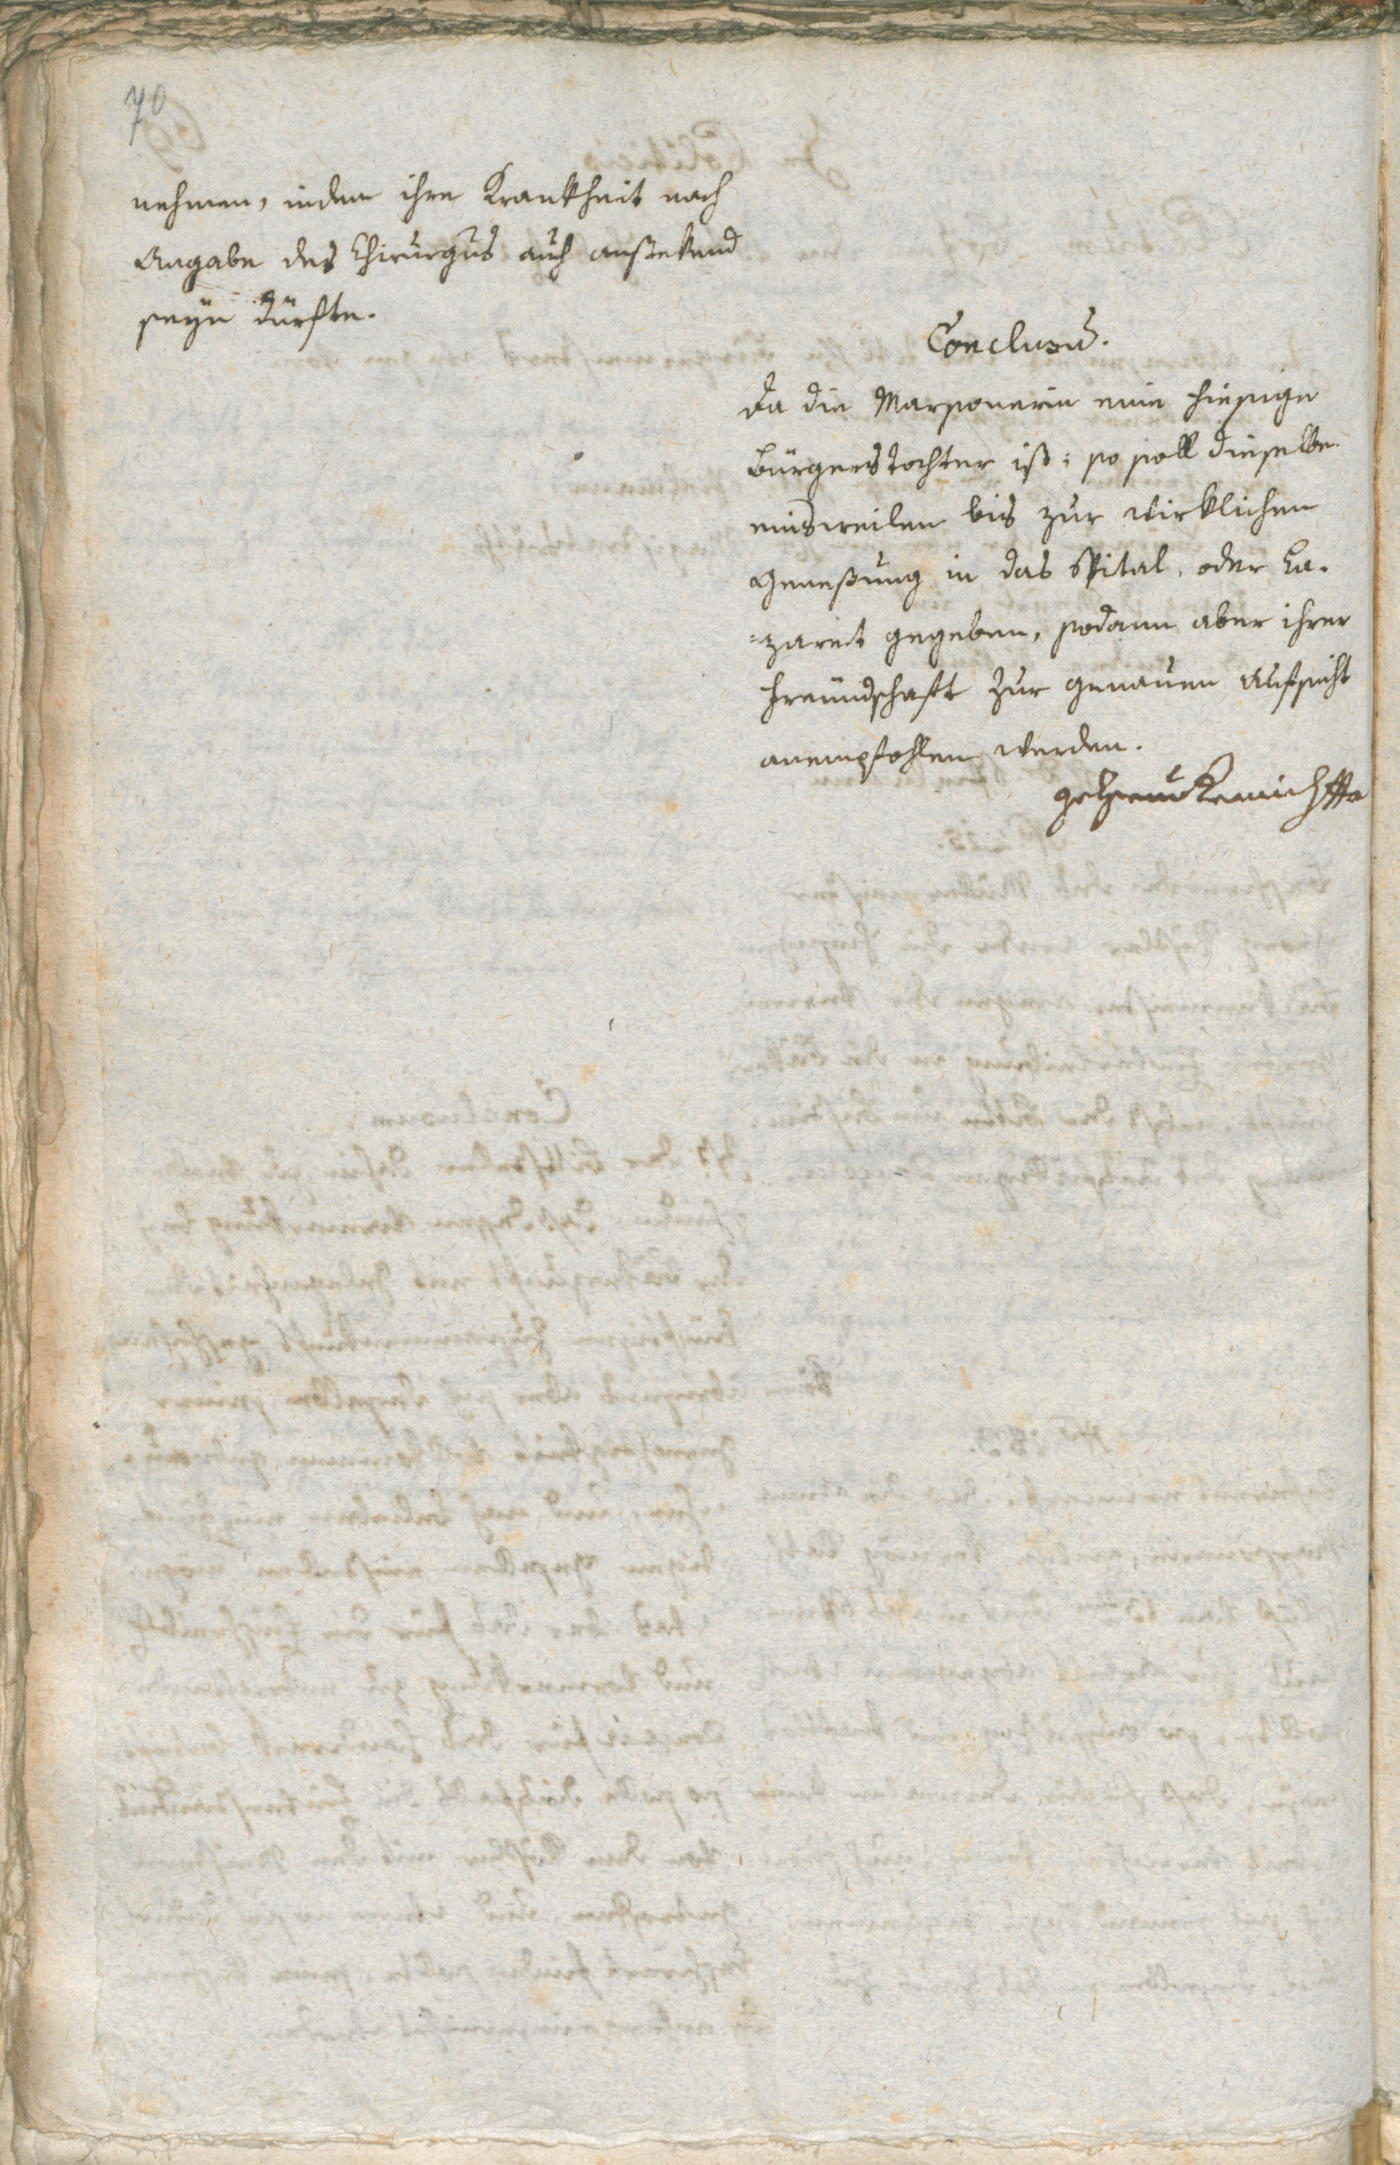 70
nehmen, indem ihre Krankheit nach
Angabe des Chirurgus auch anstekend
seyn dürfte.
Conclusũ.
Da die Marponerin eine hiesige
Bürgerstochter ist; so soll dieselbe
einsweilen bis zur wirklichen
Genesung in das Spital, oder La-
=zaret gegeben, sodann aber ihrer
Freündschaft zur genauen Aufsicht
anempfohlen werden.